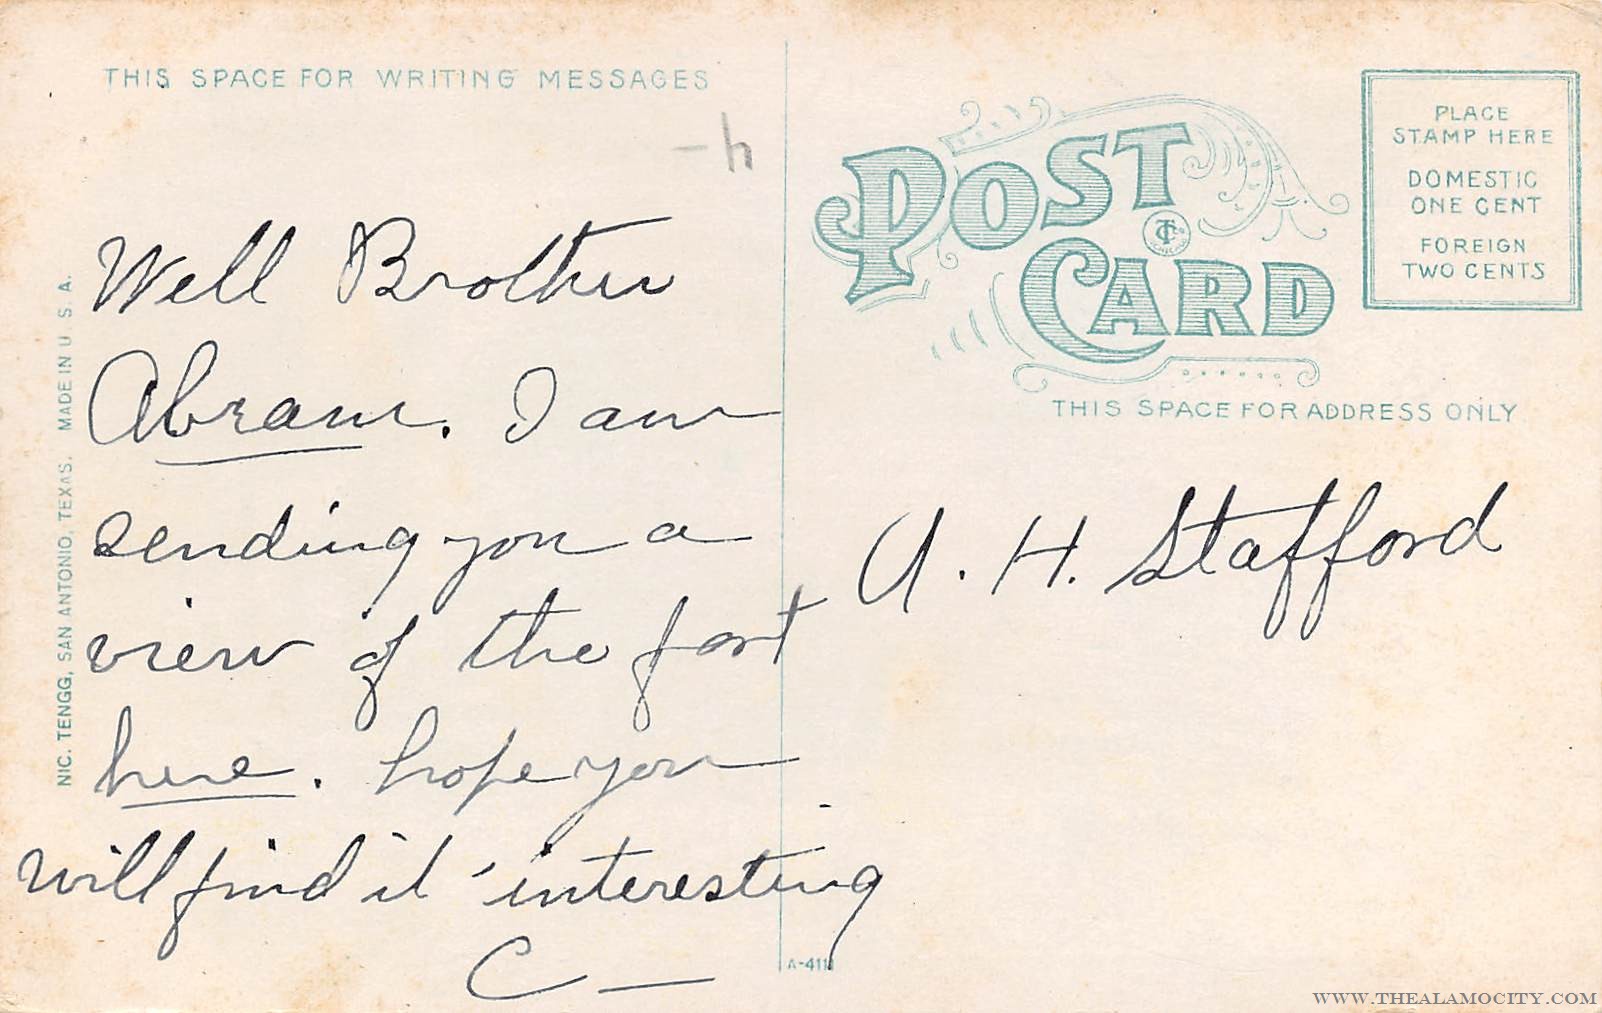 THIS SPACE FOR WRITING MESSAGES
-4
Well Brother
Abram. I am
sending you a
view of the fort
here. hope you
will find it interesting
C—
NIC. TENGG, SAN ANTONIO, TEXAS. MADE IN U. S. A.
A-4111
POST
CARD
PLACE
STAMP HERE
DOMESTIC
ONE CENT
FOREIGN
TWO CENTS
THIS SPACE FOR ADDRESS ONLY
A. H. Stafford
WWW.THEALAMOCITY.COM